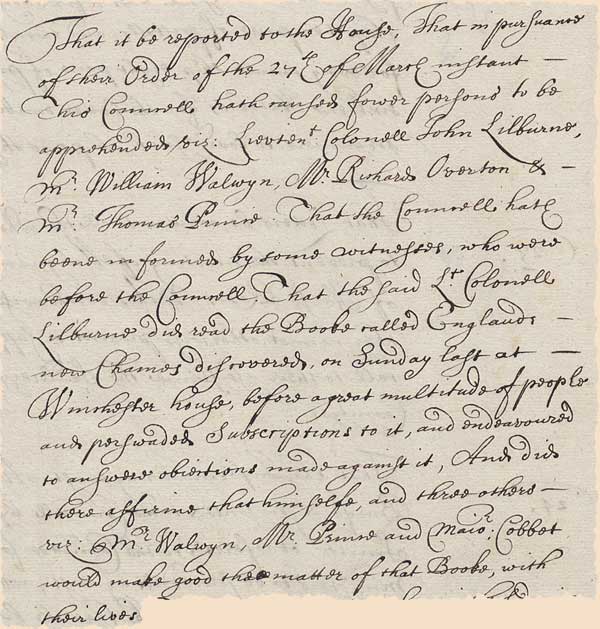 That it be reported to the House, That in pursuance
of their Order of the 27th of March instant —
This Councell hath caused fower persons to be
apprehended, viz: Lieutent Colonell John Lilburne,
Mr William Walwyn, Mr Richard Overton & —
Mr Thomas Prince. That the Councell hath
beene informed by some witnesses, who were
before the Councell, That the said Lt Colonell
Lilburne did read the Booke called Englands —
new Chaines discovered, on Sunday last at —
Winchester house, before a great multitude of people
and perswaded Subscriptions to it, and endeavoured
to answere obiections made against it, And did
there affirme that himselfe, and three others —
viz: Mr Walwyn, Mr Prince and Maior: Cobbet
would make good the matter of that Booke, with
their lives